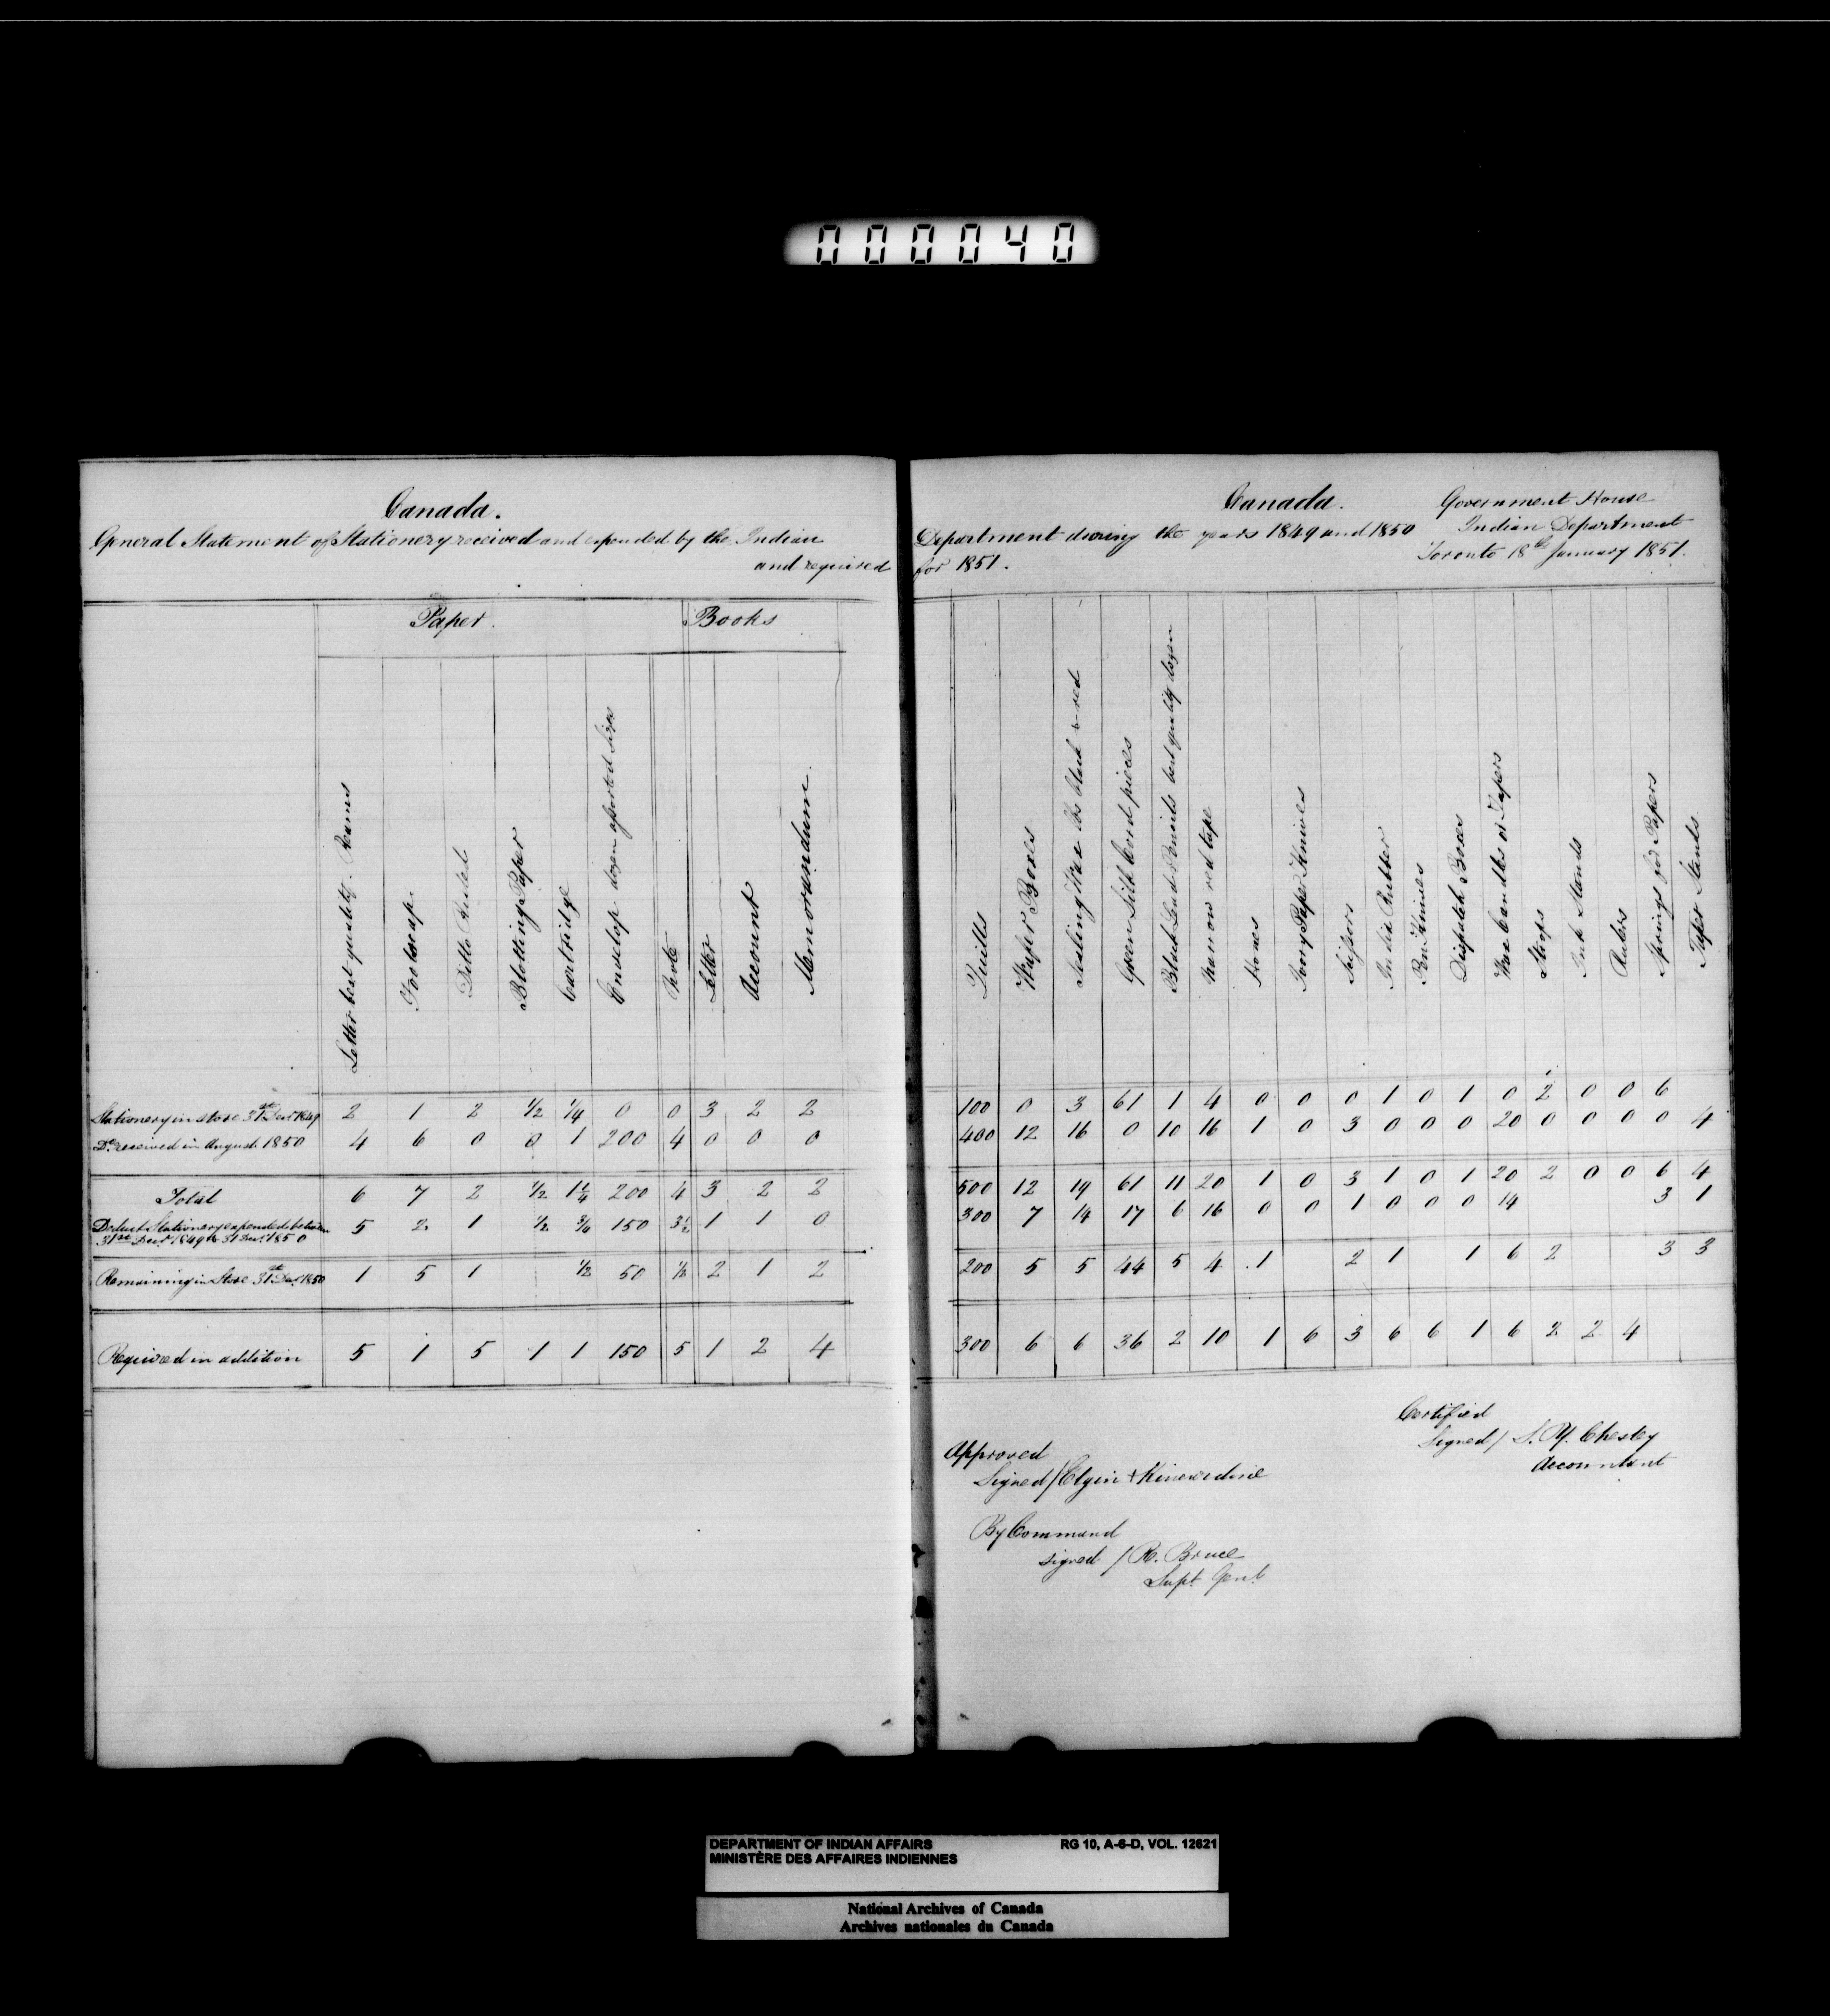 000040
Canada.
General Statement of Stationery received and expended by the Indian
and required
Paper.
Books
Letter best quality. Reams
Foolscap
Ditto Ruled
Blotting Paper
Cartridge
Envelop dozen assorted sizes
Note
Letter
Account
Memorandum
Stationery in store 31st Decr 1849 2 1 2 1/2 1/4 0 0 3 2 2
Do received in August 1850 4 6 0 0 1 200 4 0 0 0
Total 6 7 2 1/2 1 1/4 200 4 3 2 2
Deduct Stationery expended between
31st Decr 1849 & 31 Decr 1850 5 2 1 1/2 3/4 150 3 1/2 1 1 0
Remaining in Store 31st Decr 1850 1 5 1 1/2 50 1/2 2 1 2
Required in addition 5 1 5 1 1 150 5 1 2 4
Canada.
Government House
Indian Department
Toronto 18th January 1851.
Department during the years 1849 and 1850
for 1851.
Quills
Wafer Boxes
Sealing Wax lbs black & red
Green Silk Cord pieces
Black Lead Pencils best quality dozen
Narrow red tape
Hones
Ivory Paper Knives
Scissors
India Rubber
Pen Knives
Dispatch Boxes
Wax Candles or Tapers
Strops
Ink Stands
Rulers
Springs for Papers
Taper Stands.
100 0 3 61 1 4 0 0 0 1 0 1 0 2 0 0 6
400 12 16 0 10 16 1 0 3 0 0 0 20 0 0 0 0 4
500 12 19 61 11 20 1 0 3 1 0 1 20 2 0 0 6 4
300 7 14 17 6 16 0 0 1 0 0 0 14 3 1
200 5 5 44 5 4 1 2 1 1 6 2 3 3
300 6 6 36 2 10 1 6 3 6 6 1 6 2 2 4
Certified
Signed / S. Y. Chesley
Accountant
Approved
Signed / Elgin & Kincardine
By Command
signed / R. Bruce
Supt Genl
DEPARTMENT OF INDIAN AFFAIRS RG 10, A-6-D, VOL. 12621
MINISTÈRE DES AFFAIRES INDIENNES
National Archives of Canada
Archives nationales du Canada